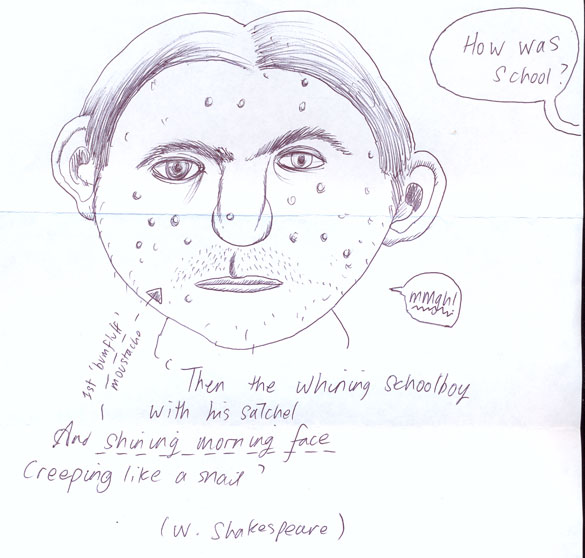 How was
School?
mmgh!
1st 'bumfluff'
moustache
' Then the whining schoolboy
with his satchel
And shining morning face
Creeping like a snail '
(W. Shakespeare)